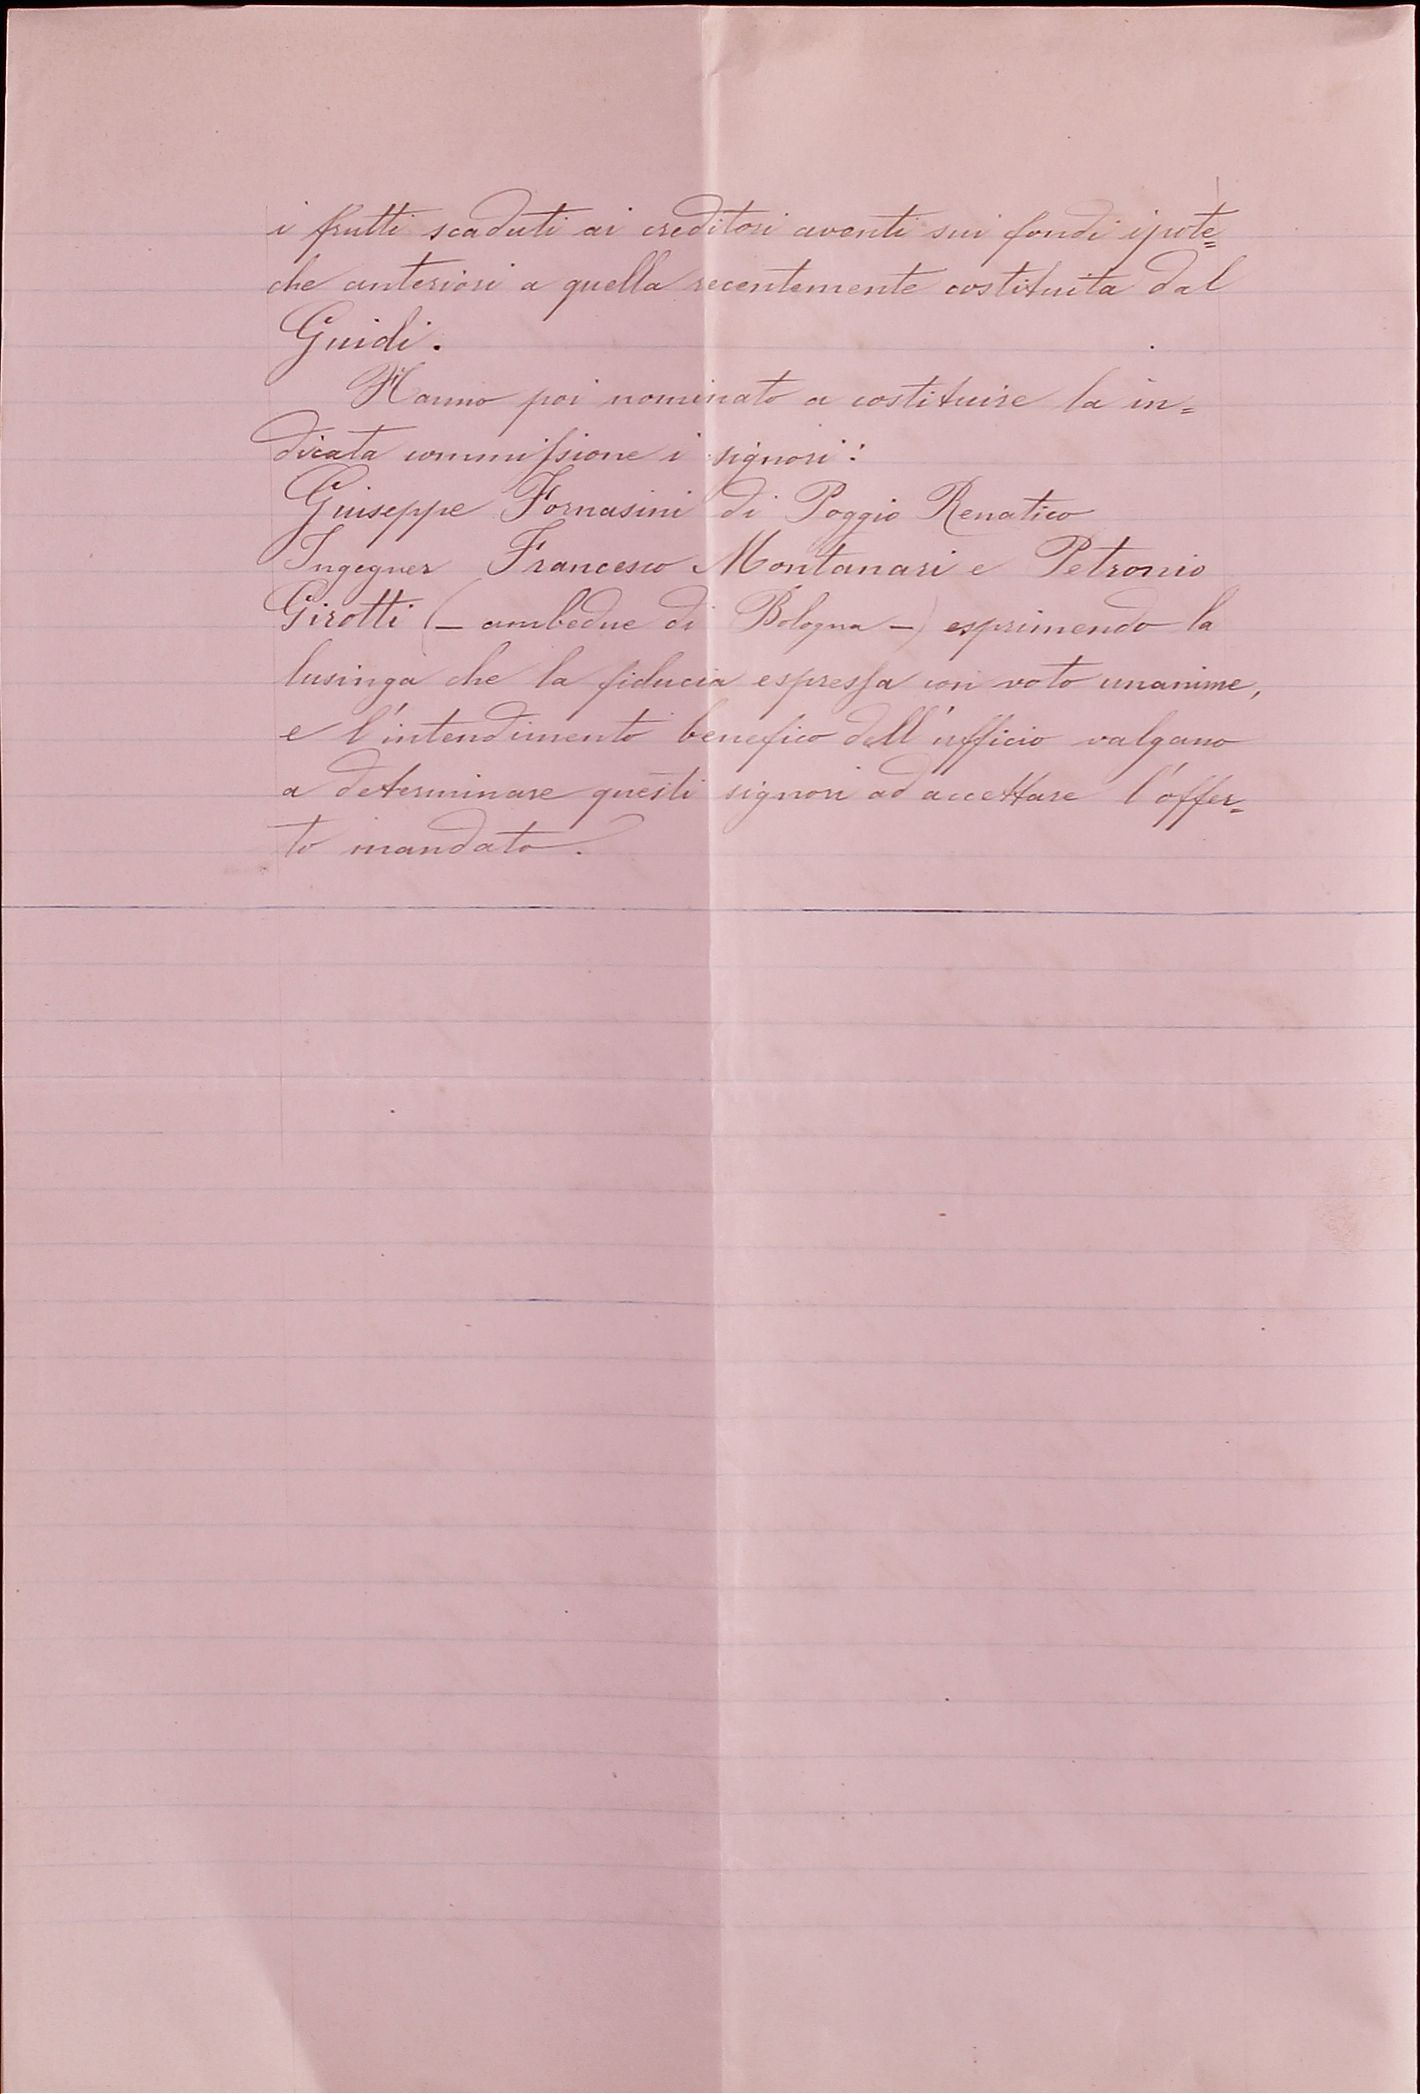 i frutti scaduti ai creditori aventi sui fondi ipote=
che anteriori a quella recentemente costituita dal
Guidi.
Hanno poi nominato a costituire la in=
dicata commissione i signori:
Giuseppe Fornasini di Poggio Renatico
Ingegner Francesco Montanari e Petronio
Girotti (- ambedue di Bologna -) esprimendo la
lusinga che la fiducia espressa con voto unanime,
e l'intendimento benefico dell'ufficio valgano
a determinare questi signori ad accettare l'offer=
to mandato.